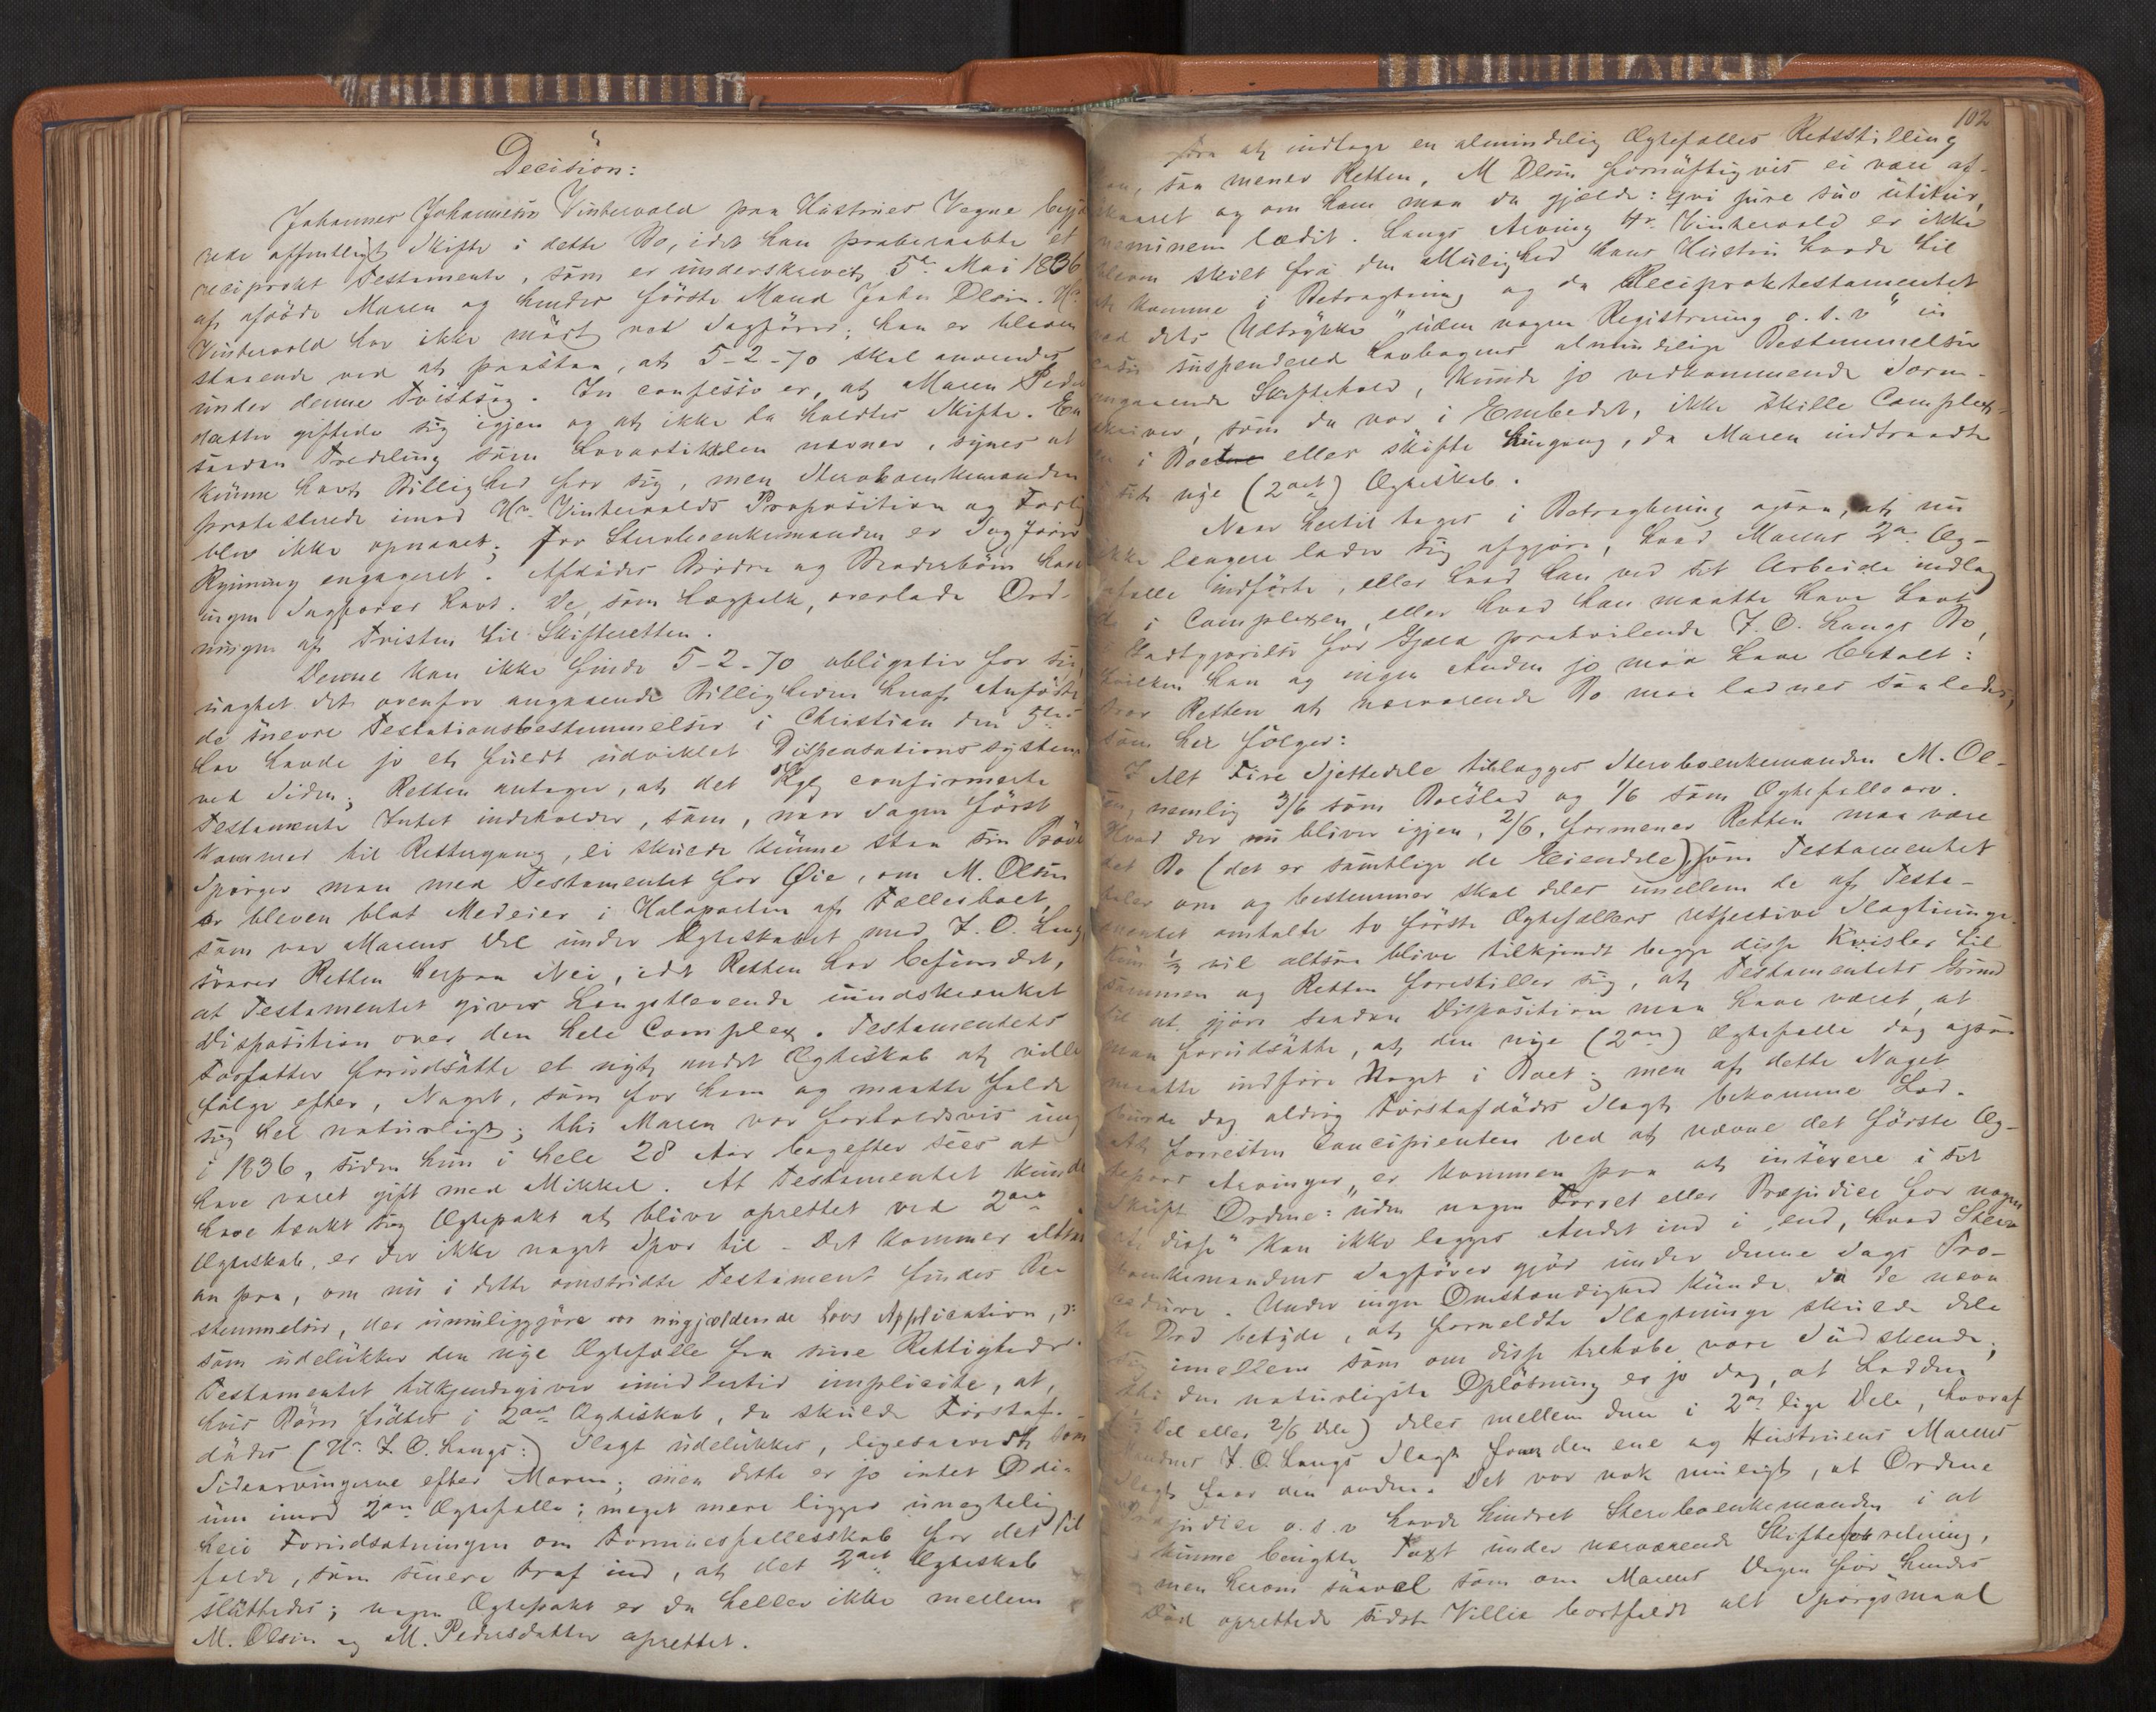 Decision:
Johannes Johannesen Vintervold paa Hustrues Vegne begjæ
rede offentligt Skifte i dette Bo, idet han paaberaabte et
reciprokt Testamente, som er underskrevet 5te Mai 1836
af afdøde Maren og hendes første Mand John Olsen. Hr.
Vintervold har ikke mødt ved Sagfører; han er bleven
staaende ved at paastaa, at 5-2-70 skal anvendes
under denne Tvistsag. In confesso er, at Maren Peders
datter giftede sig igjen og at ikke da holdtes Skifte. En
saadan Tredeling som Lovartiklen nævner, synes at
kunne havt Billighed for sig, men Sterboenkemanden
protesterede imod Hr. Vintervolds Proposition og Forlig
blev ikke opnaaet; for Sterboenkemanden er Sagfører
Rynning engageret. Afdødes Brødre og Broderbørn have
ingen Sagfører havt. De, som Lægfolk, overlade Ord-
ningen af Tvisten til Skifteretten.
Denne kan ikke finde 5-2-70 obligativ for sig,
uagtet det ovenfor angaaende Billigheden heraf Anførte
de snevre Testationsbestemmelser i Christian den 5tes
Lov havde jo et fuldt udviklet Dispensationssystem
ved Siden; Retten antager, at det Kgl. confirmerte
Testamente Intet indeholder, som, naar Sagen først
kommer til Rettergang, ei skulde kunne staa sin Prøve
Spørger man med Testamentet for Øie, om M. Olsen
er bleven blot Medeier i Halvparten af Fællesboet,
som var Marens Del under Ægteskabet med J. O. Lang
svarer Retten herpaa Nei, idet Retten har befundet,
at Testamentet giver Længstlevende uindskrænket
Disposition over den hele Complex. Testamentets
Forfatter forudsatte et nyt, andet Ægteskab at ville
følge efter, Noget, som for ham og maatte falde
sig hel naturligt; thi Maren var forholdsvis ung
i 1836, siden hun i hele 28 Aar bagefter sees at
have været gift med Mikkel. At Testamentet kunde
have tænkt sig Ægtepakt at blive oprettet ved 2det
Ægteskab, er der ikke noget Spor til. Det kommer altsaa
an paa, om nu i dette omstridte Testament findes Be-
stemmelser, der umuliggjøre vor nugjældende Lovs Application, ɔ:
som udelukker den nye Ægtefælle fra sine Rettigheder.
Testamentet tilkjendegiver imidlertid implicite, at,
hvis Børn fødtes i 2det Ægteskab, da skulde Førstaf-
dødes (Hr. J. O. Langs:) Slægt udelukkes, ligesaavidt som
Sidearvingerne efter Maren; men dette er jo intet Odi-
um imod 2den Ægtefælle; meget mere ligger unegtelig
heri Forudsætningen om Formuesfællesskab for det Til-
fælde, som senere traf ind, at det 2det Ægteskab
sluttedes; nogen Ægtepakt er da heller ikke mellem
M. Olsen og M. Pedersdatter oprettet.
102
fra at indtage en almindelig Ægtefælles Retsstilling
saa mener Retten, M Olsen fornuftigvis ei være af-
skaaret og om ham maa da gjælde: qvi jure suo utitur,
neminem lædit. Langs Arving Hr. Vintervold er ikke
bleven skilt fra den Mulighed hans Hustru havde til
at komme i Betragtning og da Reciproktestamentet
ved dets Udtrykke "uden nogen Registrering o. s. v" in
casu suspendered Lovbogens almindelige Bestemmelser
angaaende Skiftehold, kunde jo vedkommende Soren-
skriver, som da var i Embedet, ikke skille Complex-
en i Boet eller skifte hiingang, da Maren indtraadte
i sit nye (2det) Ægteskab.
Naar hertil tages i Betragtning ogsaa, at nu
ikke længere lader sig afgjøre, hvad Marens 2den Æg-
tefælle indførte, eller hvad han ved sit Arbeide indlag
de i Complexen, eller hvad han maatte have havt
Godtgjørelse for Gjæld paahvilende J. O. Langs Bo,
hvilken han og ingen Anden jo maa have betalt:
tror Retten at nærværende Bo maa lodnes saaledes,
som her følger:
I Alt Fire Sjettedele tillægges Sterboenkemanden M. Ol-
sen, nemlig 3/6 som Boeslod og 1/6 som Ægtefællearv.
Hvad der nu bliver igjen, 2/6, formener Retten maa være
det Bo (det er samtlige de Eiendele), som Testamentet
taler om og bestemmer skal deles imellem de af Testa-
mentet omtalte to første Ægtefællers respective Slægtninge.
Kun 1/3 vil altsaa blive tilkjendt begge disse Kvister til
sammen og Retten forestiller sig, at Testamentets Grund
til at gjøre saadan Disposition maa have været, at
man forudsatte, at den nye (2den) Ægtefælle dog ogsaa
maatte indføre Noget i Boet; men af dette Noget
burde dog aldrig Førstafdødes Slægt bekomme Lod.
At forresten Concipienten ved at nævne det første Æg-
tepars Arvinger, er kommen paa at insérere i sit
Skrift Ordene: "uden nogen Forret eller Præjudice for nogen
af disse" kan ikke lægges Andet ind i end, hvad Sterbo
boenkemandens Sagfører gjør under denne Sags Pro-
cedure. Under ingen Omstændighed kunde da de nævn
te Ord betyde, at formeldte Slægtninge skulde dele
sig imellem som om disse trehobe vare Sødskende;
thi den naturligste Opløsning er jo dog, at Lodden
(1/3 Del eller 2/6 Dele) deles mellem dem i 2de lige Dele, hvoraf
Mandens J. O. Langs Slægt faar den ene og Hustruens Marens
Slægt faar den anden. Det var nok muligt, at Ordene
Præjudice o. s. v havde hindret Sterboenkemanden i at
kunne benytte Taxt under nærværende Skifteforretning,
men herom saavel som om Marens Dagen før hendes
Død oprettede sidste Villie bortfaldt alt Spørgsmaal